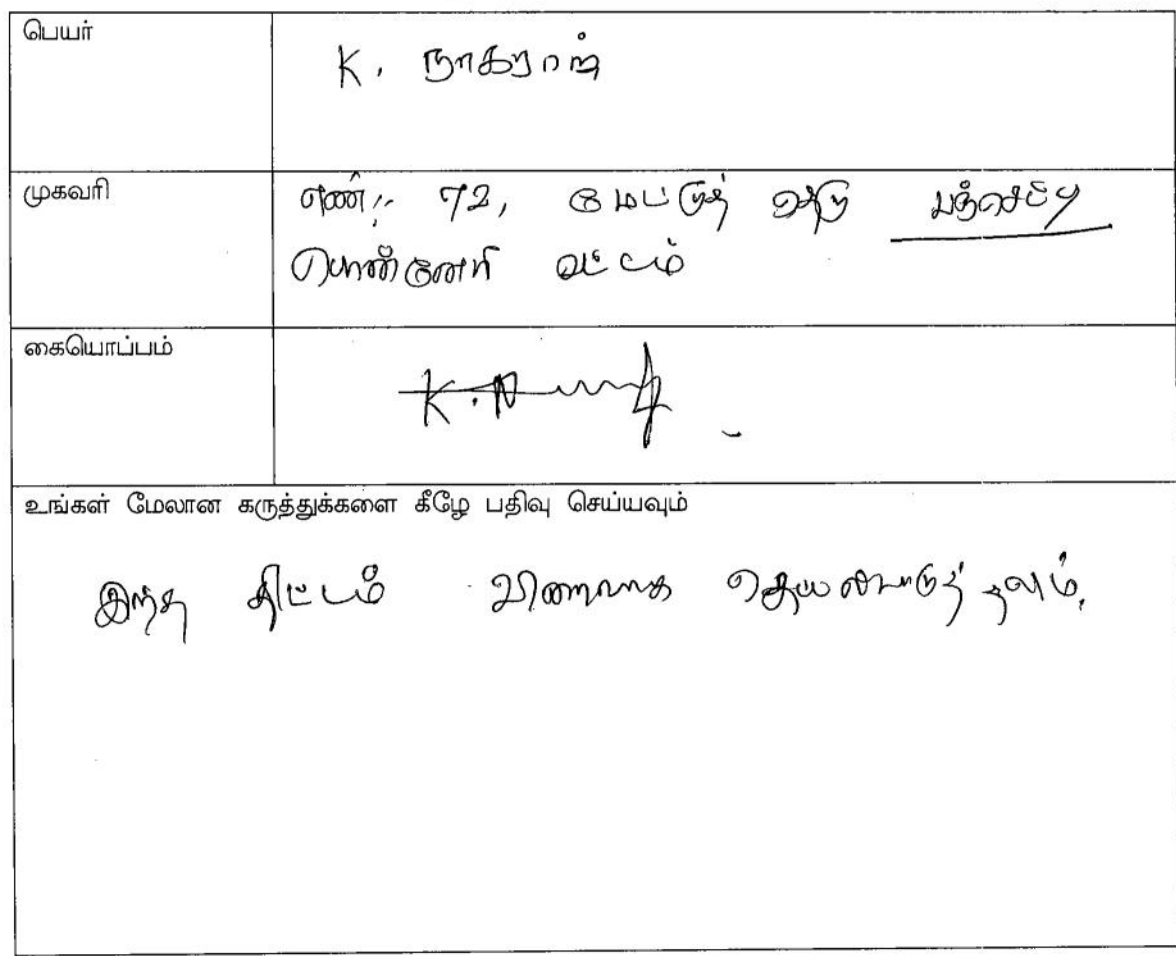 பெயர்
K. நாகராஜ்
முகவரி
எண்:- 72, மேட்டுத் தெரு பஞ்செட்டி
பொன்னேரி வட்டம்
கையொப்பம்
உங்கள் மேலான கருத்துக்களை கீழே பதிவு செய்யவும்
இந்த திட்டம் விரைவாக